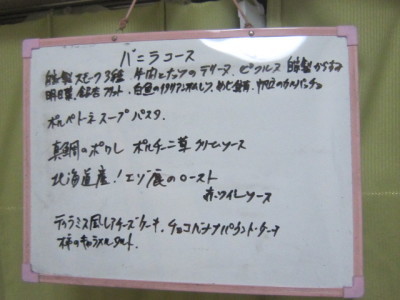 バニラコース
自家製スモーク3種 牛肉とナッツのテリーヌ、ピクルス 自家製からすみ
明日葉、 フリット、白魚のイタリアンオムレツ、 帆立のカルパッチョ
ポルペトーネスープパスタ
真鯛のポワレ ポルチーニ茸クリームソース
北海道産!エゾ鹿のロースト
赤ワインソース
ティラミス風レアチーズケーキ、チョコバナナパウンドケーキ
柿のキャラメルタルト